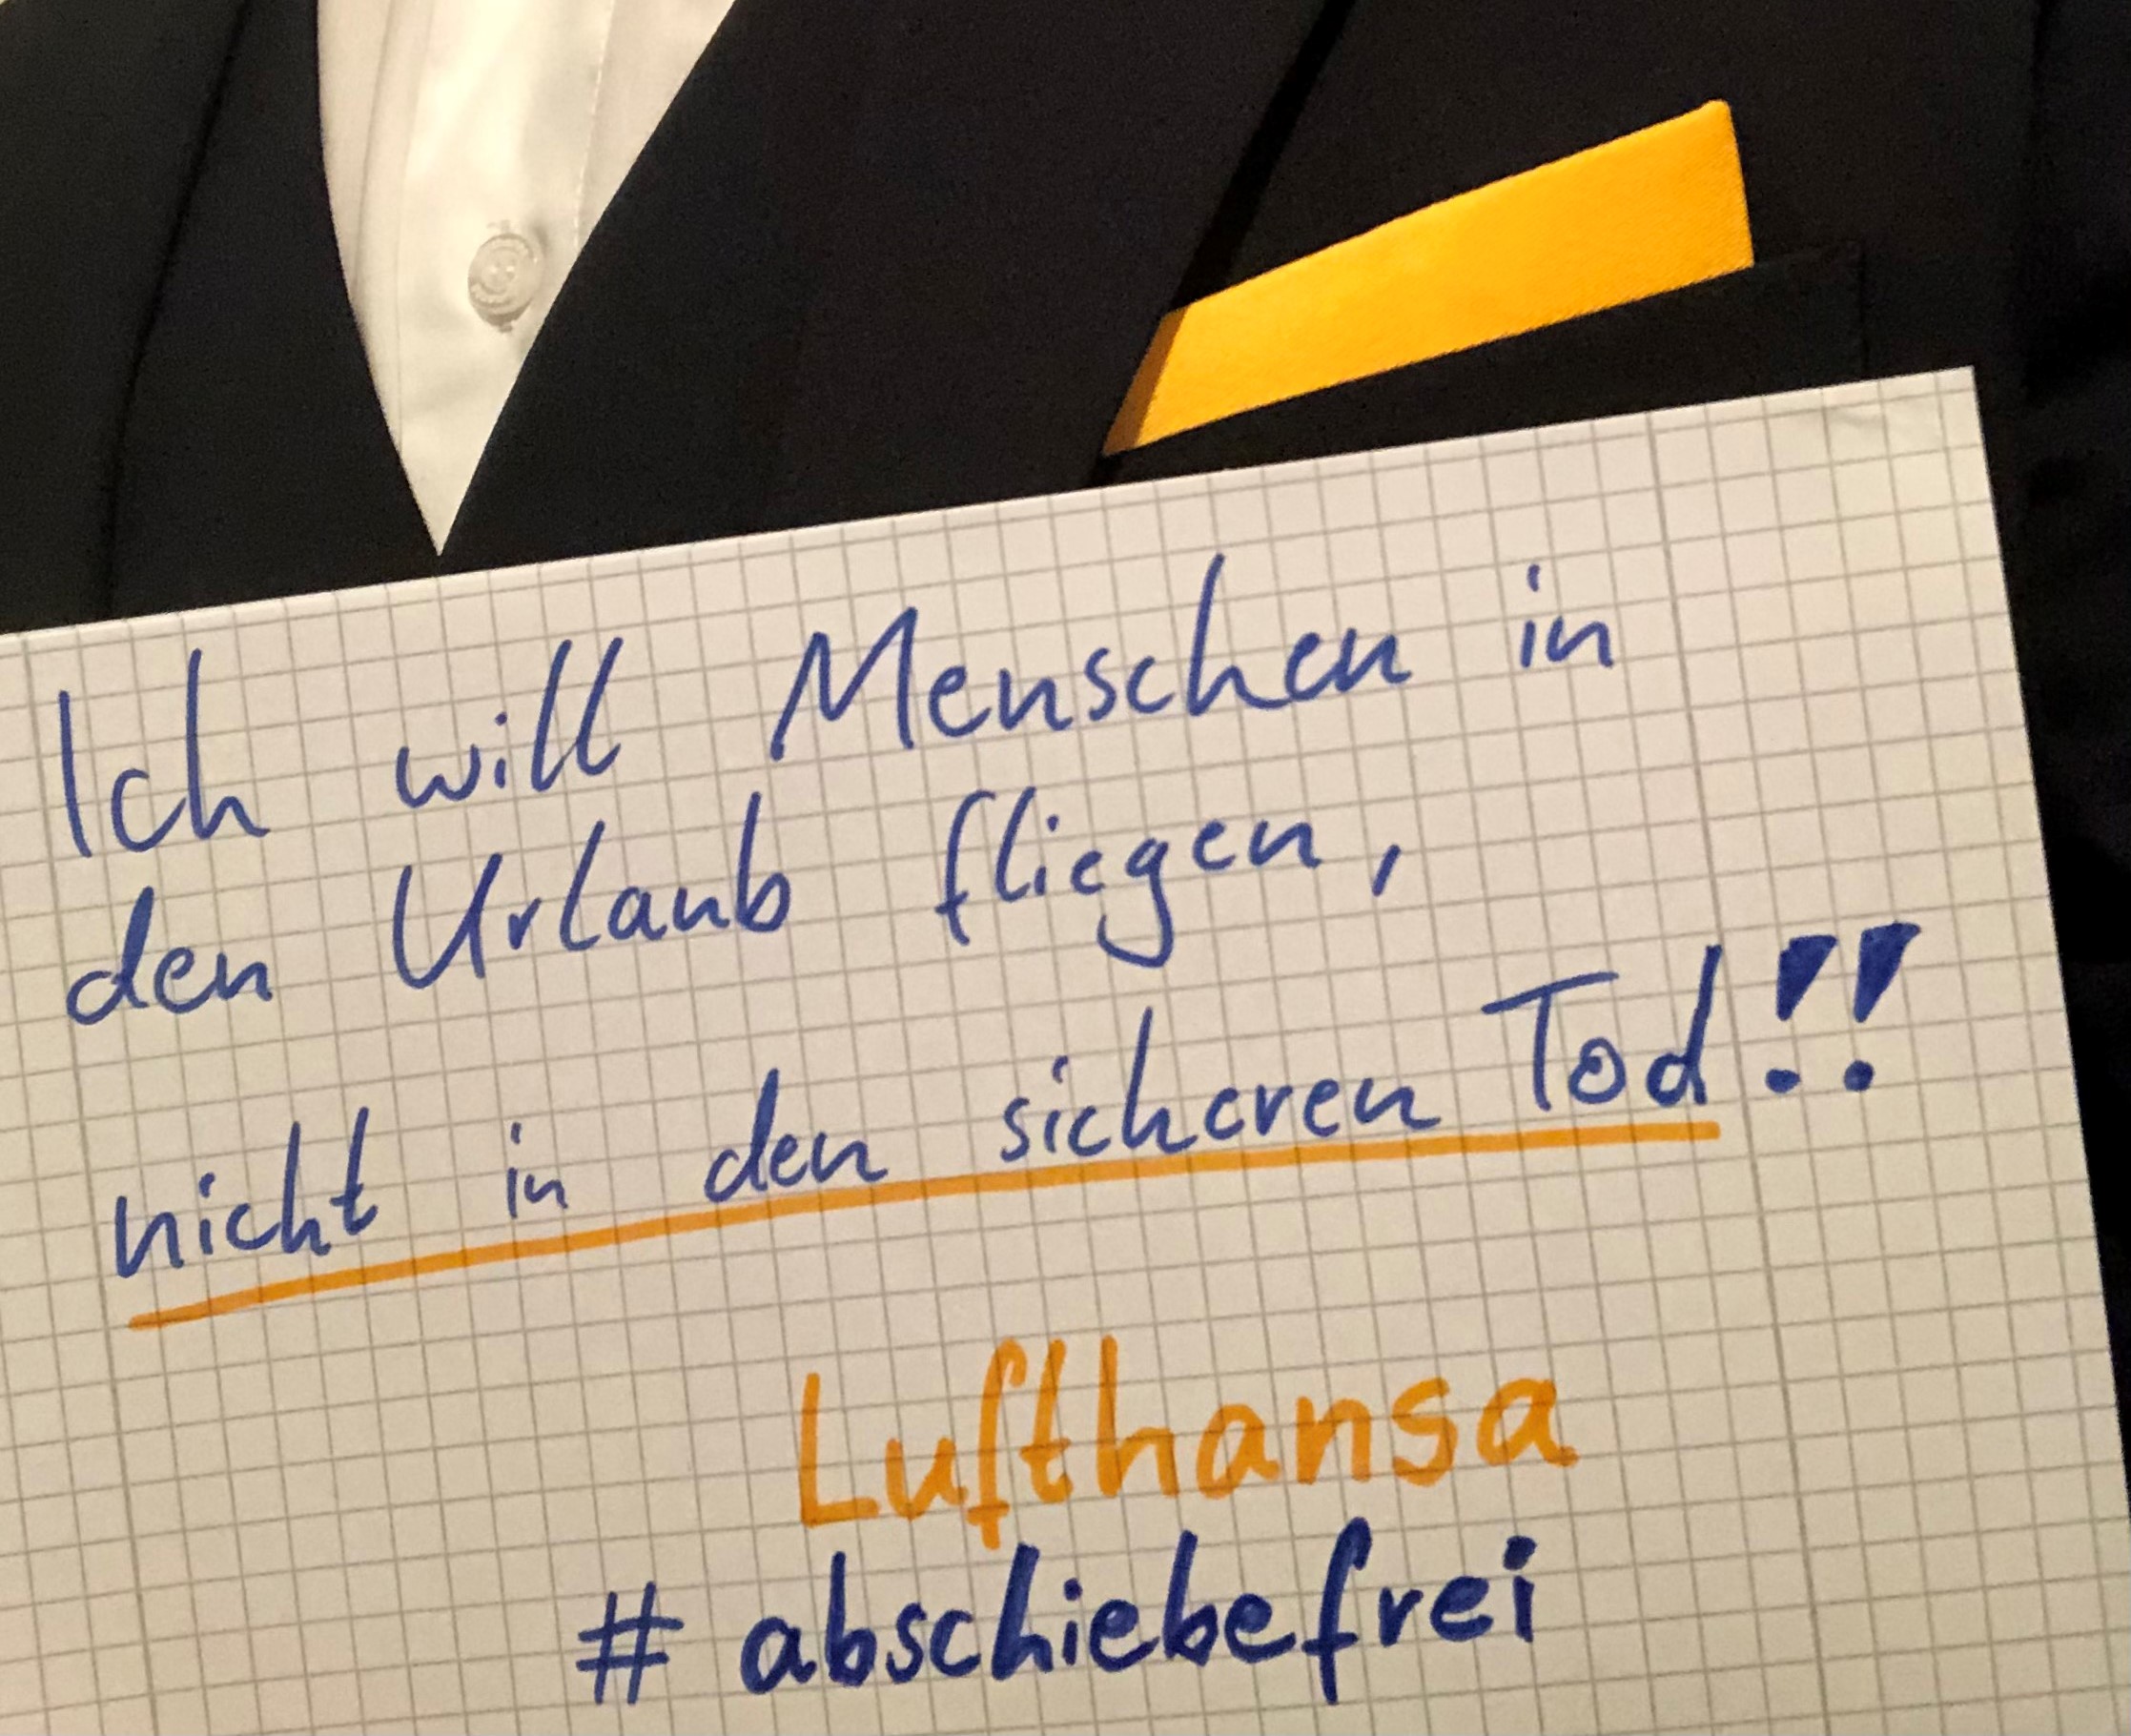 Ich will Menschen in
den Urlaub fliegen,
nicht in den sicheren Tod!!
Lufthansa
# abschiebefrei